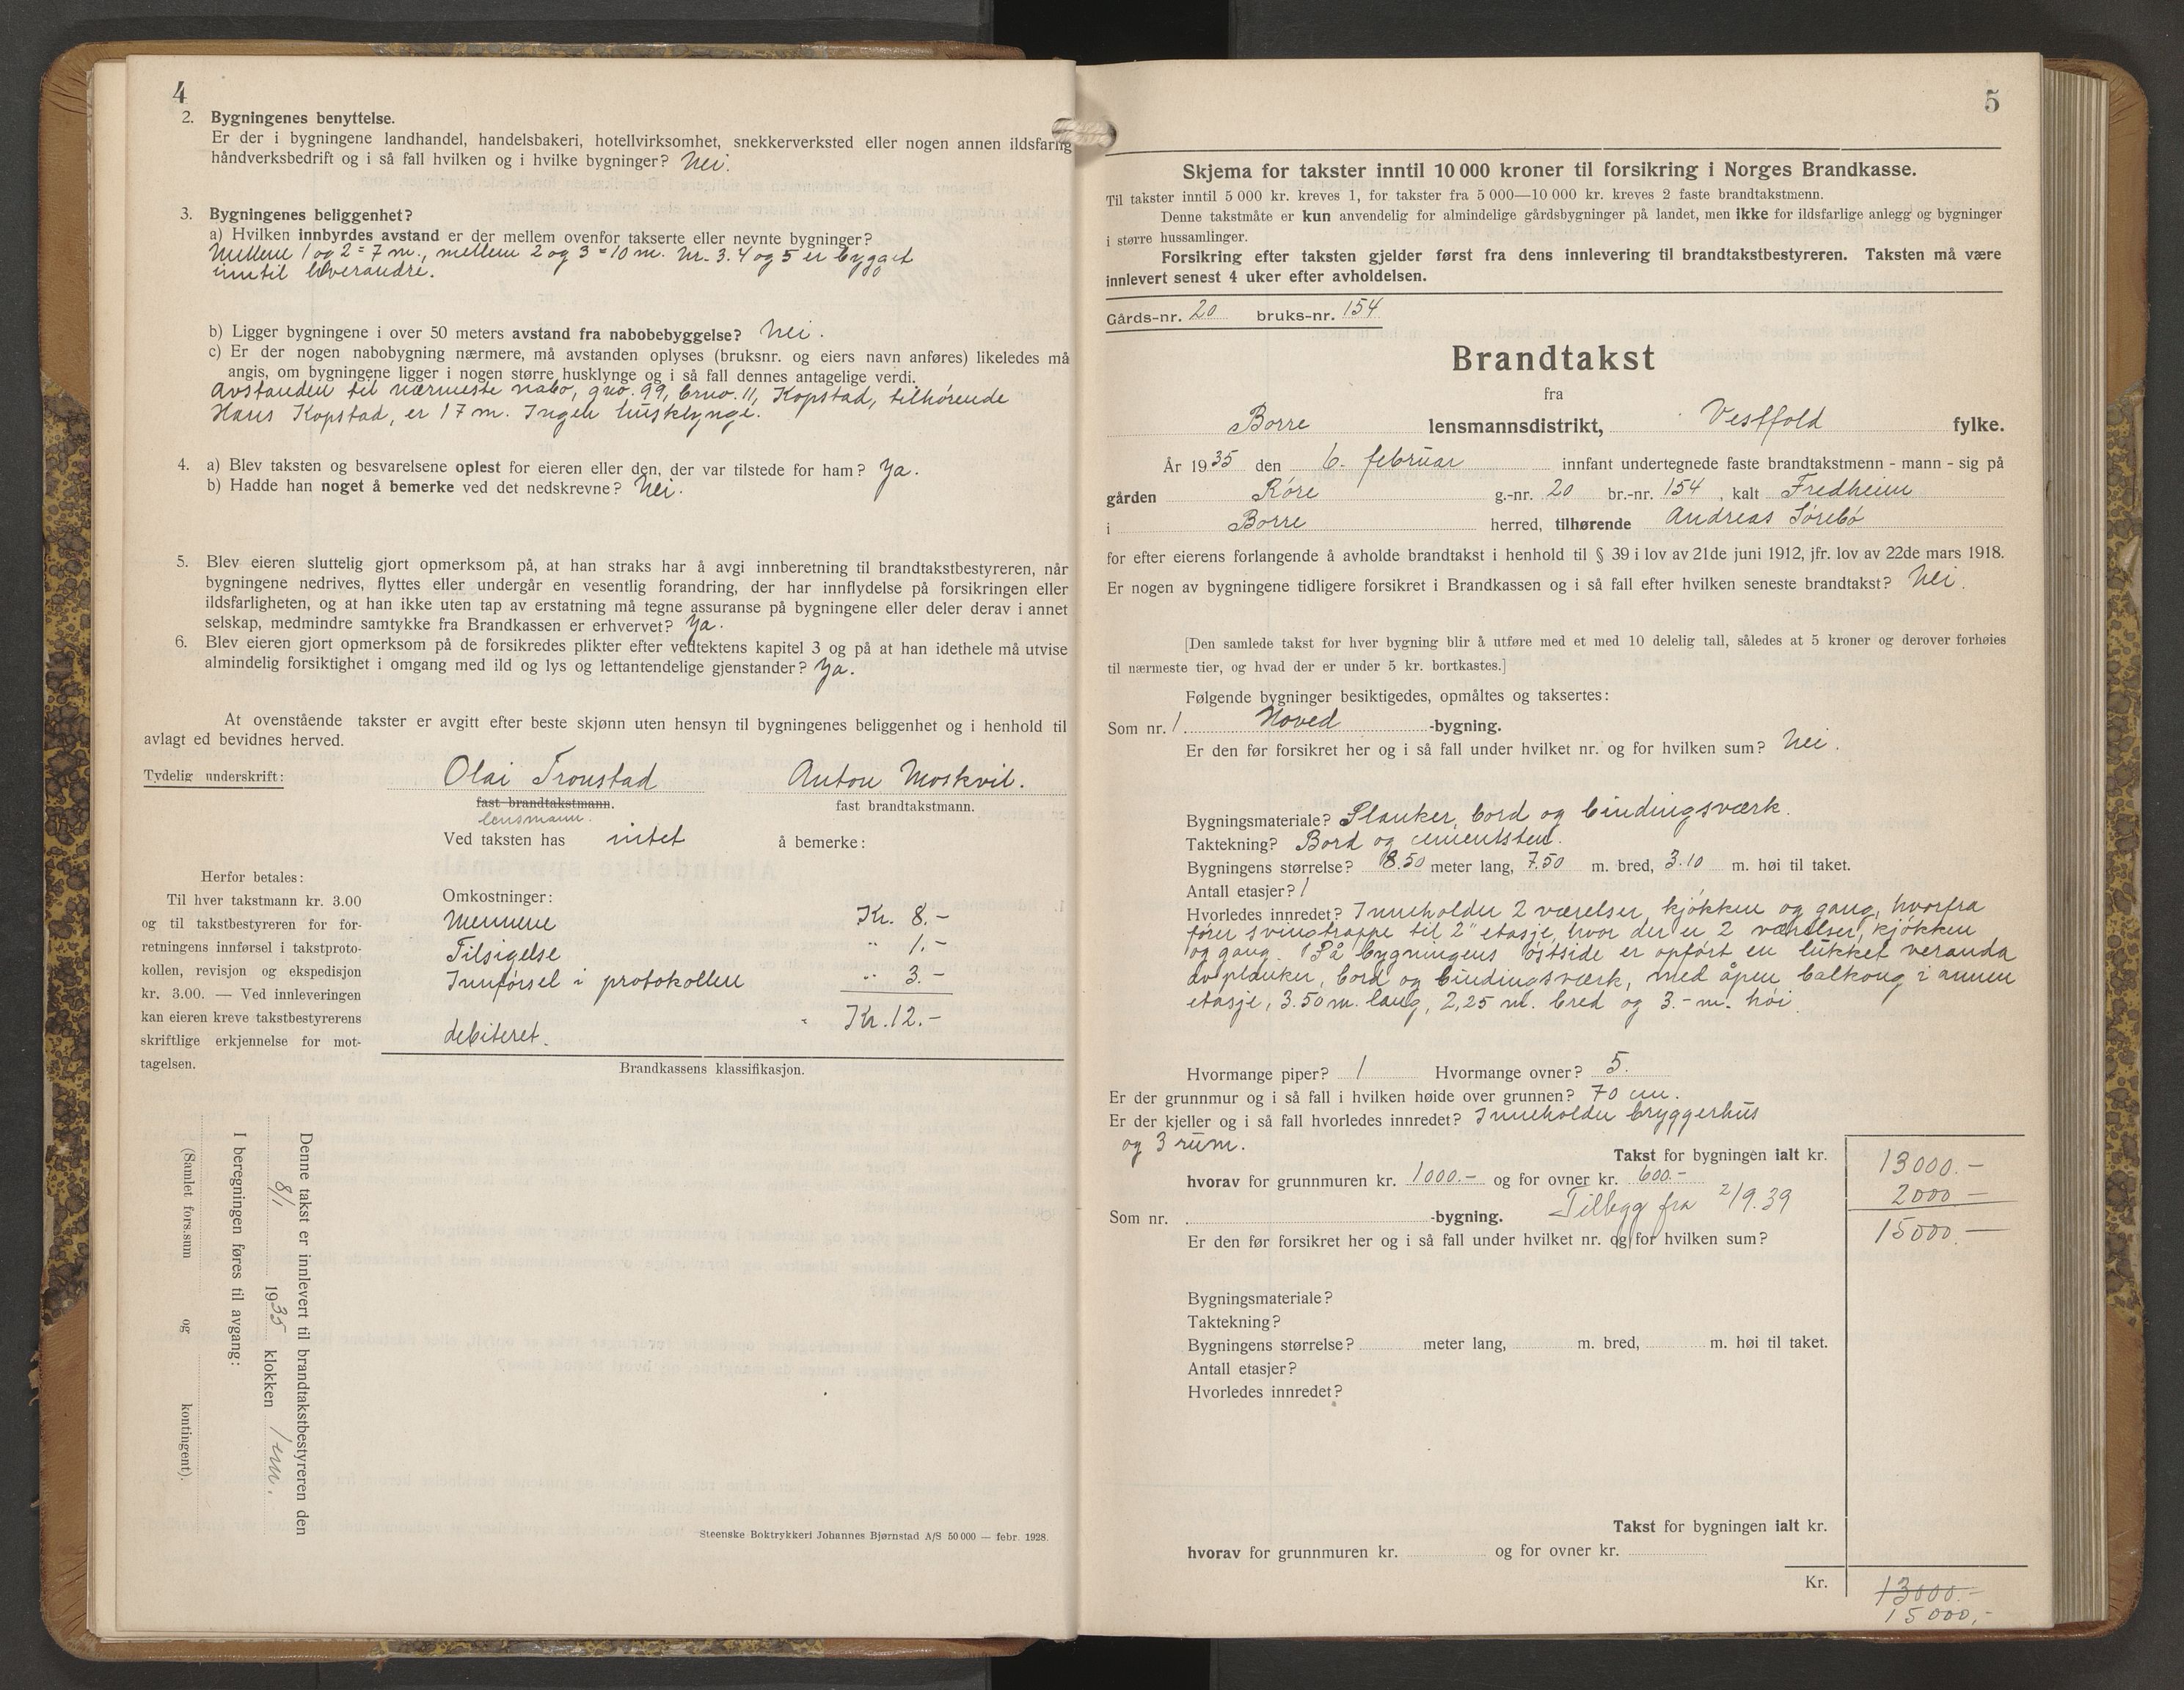 4
2. Bygningenes benyttelse.
Er der i bygningene landhandel, handelsbakeri, hotellvirksomhet, snekkerverksted eller nogen annen ildsfarlig
håndverksbedrift og i så fall hvilken og i hvilke bygninger? Nei.
3. Bygningenes beliggenhet?
a) Hvilken innbyrdes avstand er der mellem ovenfor takserte eller nevnte bygninger?
Mellem 1 og 2 = 7 m., mellem 2 og 3 = 10 m. Nr. 3. 4 og 5 er bygget
inntil hverandre.
b) Ligger bygningene i over 50 meters avstand fra nabobebyggelse? Nei.
c) Er der nogen nabobygning nærmere, må avstanden oplyses (bruksnr. og eiers navn anføres) likeledes må
angis, om bygningene ligger i nogen større husklynge og i så fall dennes antagelige verdi.
Avstanden til nærmeste nabo, gno. 99, bno. 11, Kopstad, tilhørende
Hans Kopstad, er 17 m. Ingen husklynge.
4. a) Blev taksten og besvarelsene oplest for eieren eller den, der var tilstede for ham? Ja.
b) Hadde han noget å bemerke ved det nedskrevne? Nei.
5. Blev eieren sluttelig gjort opmerksom på, at han straks har å avgi innberetning til brandtakstbestyreren, når
bygningene nedrives, flyttes eller undergår en vesentlig forandring, der har innflydelse på forsikringen eller
ildsfarligheten, og at han ikke uten tap av erstatning må tegne assuranse på bygningene eller deler derav i annet
selskap, medmindre samtykke fra Brandkassen er erhvervet? Ja.
6. Blev eieren gjort opmerksom på de forsikredes plikter efter vedtektens kapitel 3 og på at han idethele må utvise
almindelig forsiktighet i omgang med ild og lys og lettantendelige gjenstander? Ja.
At ovenstående takster er avgitt efter beste skjønn uten hensyn til bygningenes beliggenhet og i henhold til
avlagt ed bevidnes herved.
Tydelig underskrift: Olai Tronstad Anton Moskvil.
fast brandtakstmann. fast brandtakstmann.
lensmann.
Ved taksten has intet å bemerke:
Herfor betales:
Til hver takstmann kr. 3.00
og til takstbestyreren for for-
retningens innførsel i takstproto-
kollen, revisjon og ekspedisjon
kr. 3.00. — Ved innleveringen
kan eieren kreve takstbestyrerens
skriftlige erkjennelse for mot-
tagelsen.
Omkostninger:
Mennene Kr. 8.-
Tilsigelse " 1.-
Innførsel i protokollen " 3.-
Kr. 12.-
debiteret.
Brandkassens klassifikasjon.
Denne takst er innlevert til brandtakstbestyreren den
8/1 1935 klokken 1 em.
I beregningen føres til avgang:
(Samlet fors.sum og kontingent).
Steenske Boktrykkeri Johannes Bjørnstad A/S 50 000 — febr. 1928.
5
Skjema for takster inntil 10 000 kroner til forsikring i Norges Brandkasse.
Til takster inntil 5 000 kr. kreves 1, for takster fra 5 000—10 000 kr. kreves 2 faste brandtakstmenn.
Denne takstmåte er kun anvendelig for almindelige gårdsbygninger på landet, men ikke for ildsfarlige anlegg og bygninger
i større hussamlinger.
Forsikring efter taksten gjelder først fra dens innlevering til brandtakstbestyreren. Taksten må være
innlevert senest 4 uker efter avholdelsen.
Gårds-nr. 20 bruks-nr. 154
Brandtakst
fra
Borre lensmannsdistrikt, Vestfold fylke.
År 1935 den 6. februar innfant undertegnede faste brandtakstmenn - mann - sig på
gården Røre g.-nr. 20 br.-nr. 154, kalt Fredheim
i Borre herred, tilhørende Andreas Sørebø
for efter eierens forlangende å avholde brandtakst i henhold til § 39 i lov av 21de juni 1912, jfr. lov av 22de mars 1918.
Er nogen av bygningene tidligere forsikret i Brandkassen og i så fall efter hvilken seneste brandtakst? Nei.
[Den samlede takst for hver bygning blir å utføre med et med 10 delelig tall, således at 5 kroner og derover forhøies
til nærmeste tier, og hvad der er under 5 kr. bortkastes.]
Følgende bygninger besiktigedes, opmåltes og taksertes:
Som nr. 1 Hoved -bygning.
Er den før forsikret her og i så fall under hvilket nr. og for hvilken sum? Nei.
Bygningsmateriale? Planker, bord og bindingsværk.
Taktekning? Bord og cementsten.
Bygningens størrelse? 8.50 meter lang, 7.50 m. bred, 3.10 m. høi til taket.
Antall etasjer? 1
Hvorledes innredet? Inneholder 2 værelser, kjøkken og gang, hvorfra
fører svingtrappe til 2" etasje, hvor der er 2 værelser, kjøkken
og gang. På bygningens østside er opført en lukket veranda
av planker, bord og bindingsværk, med åpen balkong i annen
etasje, 3.50 m. lang, 2,25 m. bred og 3.- m. høi.
Hvormange piper? 1 Hvormange ovner? 5.
Er der grunnmur og i så fall i hvilken høide over grunnen? 70 cm.
Er der kjeller og i så fall hvorledes innredet? Inneholder bryggerhus
og 3 rum.
Takst for bygningen ialt kr. 13000.-
hvorav for grunnmuren kr. 1000.- og for ovner kr. 600.-
Tillegg fra 2/9.39 2000 -
Som nr. -bygning. 15000.-
Er den før forsikret her og i så fall under hvilket nr. og for hvilken sum?
Bygningsmateriale?
Taktekning?
Bygningens størrelse? meter lang, m. bred, m. høi til taket.
Antall etasjer?
Hvorledes innredet?
Takst for bygningen ialt kr.
hvorav for grunnmuren kr. og for ovner kr.
Kr. 13000.-
15000.-